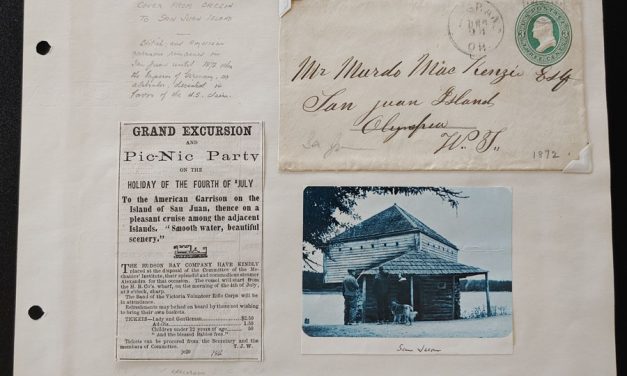 COVER FROM OREGON
TO SAN JUAN ISLAND
British and American
garrisons remained on
San Juan until 1872 when
the Emperor of Germany, as
arbitrator, decided in
favor of the U.S. claim.
GRAND EXCURSION
AND
Pic-Nic Party
ON THE
HOLIDAY OF THE FOURTH OF JULY
To the American Garrison on the
Island of San Juan, thence on a
pleasant cruise among the adjacent
Islands. "Smooth water, beautiful
scenery."
THE HUDSON BAY COMPANY HAVE KINDLY
placed at the disposal of the Committee of the Me-
chanics' Institute, their splendid and commodious steamer
Alexander for that occasion. The vessel will start from
the H. B. Co's. wharf, on the morning of the 4th of July,
at 8 o'clock, sharp.
The Band of the Victoria Volunteer Rifle Corps will be
in attendance.
Refreshments may be had on board by those not wishing
to bring their own baskets.
TICKETS—Lady and Gentleman $2.50
Adults 1.50
Children under 12 years of age .50
"and the blessed Babies free."
Tickets can be procured from the Secretary and the
members of Committee. T. J. W.
Mr Murdo Mac Kenzie Esq
San Juan Island
Olympia
W. T.
1872
San Juan